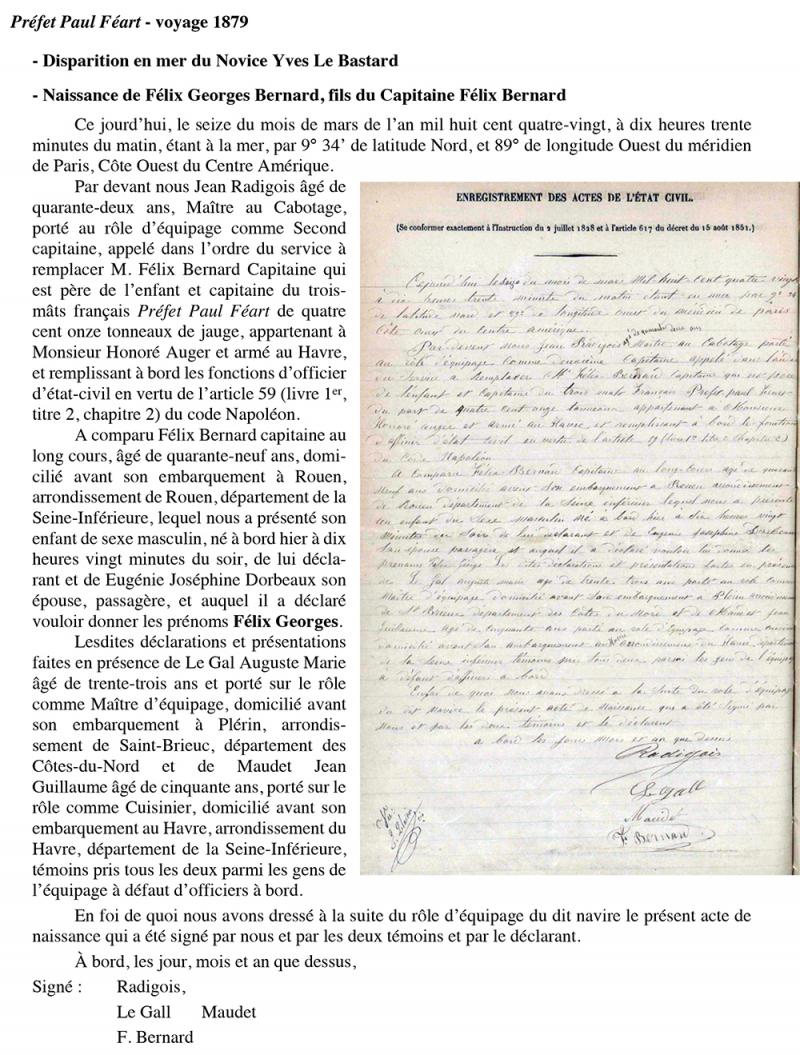 Préfet Paul Féart - voyage 1879
- Disparition en mer du Novice Yves Le Bastard
- Naissance de Félix Georges Bernard, fils du Capitaine Félix Bernard
Ce jourd’hui, le seize du mois de mars de l’an mil huit cent quatre-vingt, à dix heures trente
minutes du matin, étant à la mer, par 9° 34’ de latitude Nord, et 89° de longitude Ouest du méridien
de Paris, Côte Ouest du Centre Amérique.
Par devant nous Jean Radigois âgé de
quarante-deux ans, Maître au Cabotage,
porté au rôle d’équipage comme Second
capitaine, appelé dans l’ordre du service à
remplacer M. Félix Bernard Capitaine qui
est père de l’enfant et capitaine du trois-
mâts français Préfet Paul Féart de quatre
cent onze tonneaux de jauge, appartenant à
Monsieur Honoré Auger et armé au Havre,
et remplissant à bord les fonctions d’officier
d’état-civil en vertu de l’article 59 (livre 1er,
titre 2, chapitre 2) du code Napoléon.
A comparu Félix Bernard capitaine au
long cours, âgé de quarante-neuf ans, domi-
cilié avant son embarquement à Rouen,
arrondissement de Rouen, département de la
Seine-Inférieure, lequel nous a présenté son
enfant de sexe masculin, né à bord hier à dix
heures vingt minutes du soir, de lui décla-
rant et de Eugénie Joséphine Dorbeaux son
épouse, passagère, et auquel il a déclaré
vouloir donner les prénoms Félix Georges.
Lesdites déclarations et présentations
faites en présence de Le Gal Auguste Marie
âgé de trente-trois ans et porté sur le rôle
comme Maître d’équipage, domicilié avant
son embarquement à Plérin, arrondis-
sement de Saint-Brieuc, département des
Côtes-du-Nord et de Maudet Jean
Guillaume âgé de cinquante ans, porté sur le
rôle comme Cuisinier, domicilié avant son
embarquement au Havre, arrondissement du
Havre, département de la Seine-Inférieure,
témoins pris tous les deux parmi les gens de
l’équipage à défaut d’officiers à bord.
ENREGISTREMENT DES ACTES DE L’ÉTAT CIVIL.
(Se conformer exactement à l’Instruction du 2 juillet 1828 et à l’article 617 du décret du 15 août 1851.)
du mois de mars Mil huit cent quatre vingt
à dix heures trente minutes du matin étant en mer par
de latitude Nord et de longitude ouest du méridien de paris
Côte ouest du Centre amérique.
Par devant Nous Jean Radigois Maître au Cabotage porté
au rôle d’équipage Comme Capitaine appelé dans
du Service a Remplacer Mr Félix Bernard Capitaine qui est père
de l’enfant et Capitaine du trois mats Français Préfet paul Féart
du port de quatre Cent onze tonneaux appartenant a Monsieur
Honoré auger et armé au Havre et remplissant à bord les fonctions
d’officier d’état Civil en vertu de l’article
du Code Napoléon
A Comparu Félix Bernard Capitaine au long Cours agé de quarante
neuf ans domicilié avant Son embarquement à Rouen arrondissement
de Rouen département de la Seine inférieure lequel nous a présenté
un enfant du Sexe masculin Né a bord hier a dix heures vingt
minutes du Soir de lui déclarant et de Eugénie Joséphine
Son épouse passagère et auquel il a déclaré vouloir lui donner les
prénoms
de Le Gal auguste marie agé de trente trois ans porté au rôle comme
Maître d’équipage domicilié avant Son embarquement a Plérin
de St Brieuc département des Côtes du Nord et de Jean
Guillaume agé de Cinquante ans porté au rôle d’équipage Comme
domicilié avant Son embarquement au arrondissement du Havre
de la Seine inférieure témoins pris tous deux parmi les gens de l’équipage
a défaut d’officiers a bord
Enfoi de quoi Nous avons dressé a la Suite du rôle d’équipage
du dit Navire le présent acte de Naissance qui a été Signé par
Nous et par les deux témoins et le déclarant
a bord les jours Mois et an que dessus
Radigois
Le Gall
Maudet
F. Bernard
En foi de quoi nous avons dressé à la suite du rôle d’équipage du dit navire le présent acte de
naissance qui a été signé par nous et par les deux témoins et par le déclarant.
À bord, les jour, mois et an que dessus,
Signé : Radigois,
Le Gall Maudet
F. Bernard